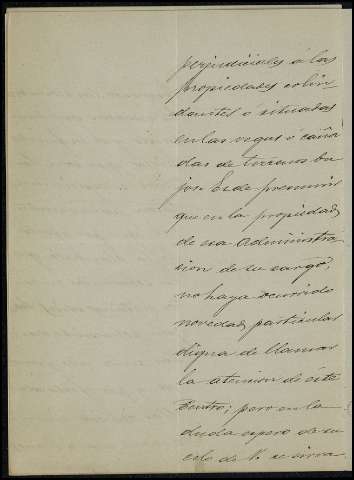 perjudiciales á las
propiedades colin-
dantes ó situadas
en las vegas ó caña
das de terrenos ba
jos. Es de presumir
que en la propiedad
de esa Administra
cion de su cargo,
no haya ocurrido
novedad particular
digna de llamar
la atencion de éste
Centro; pero en la
duda espero de su
celo de V. se sirva